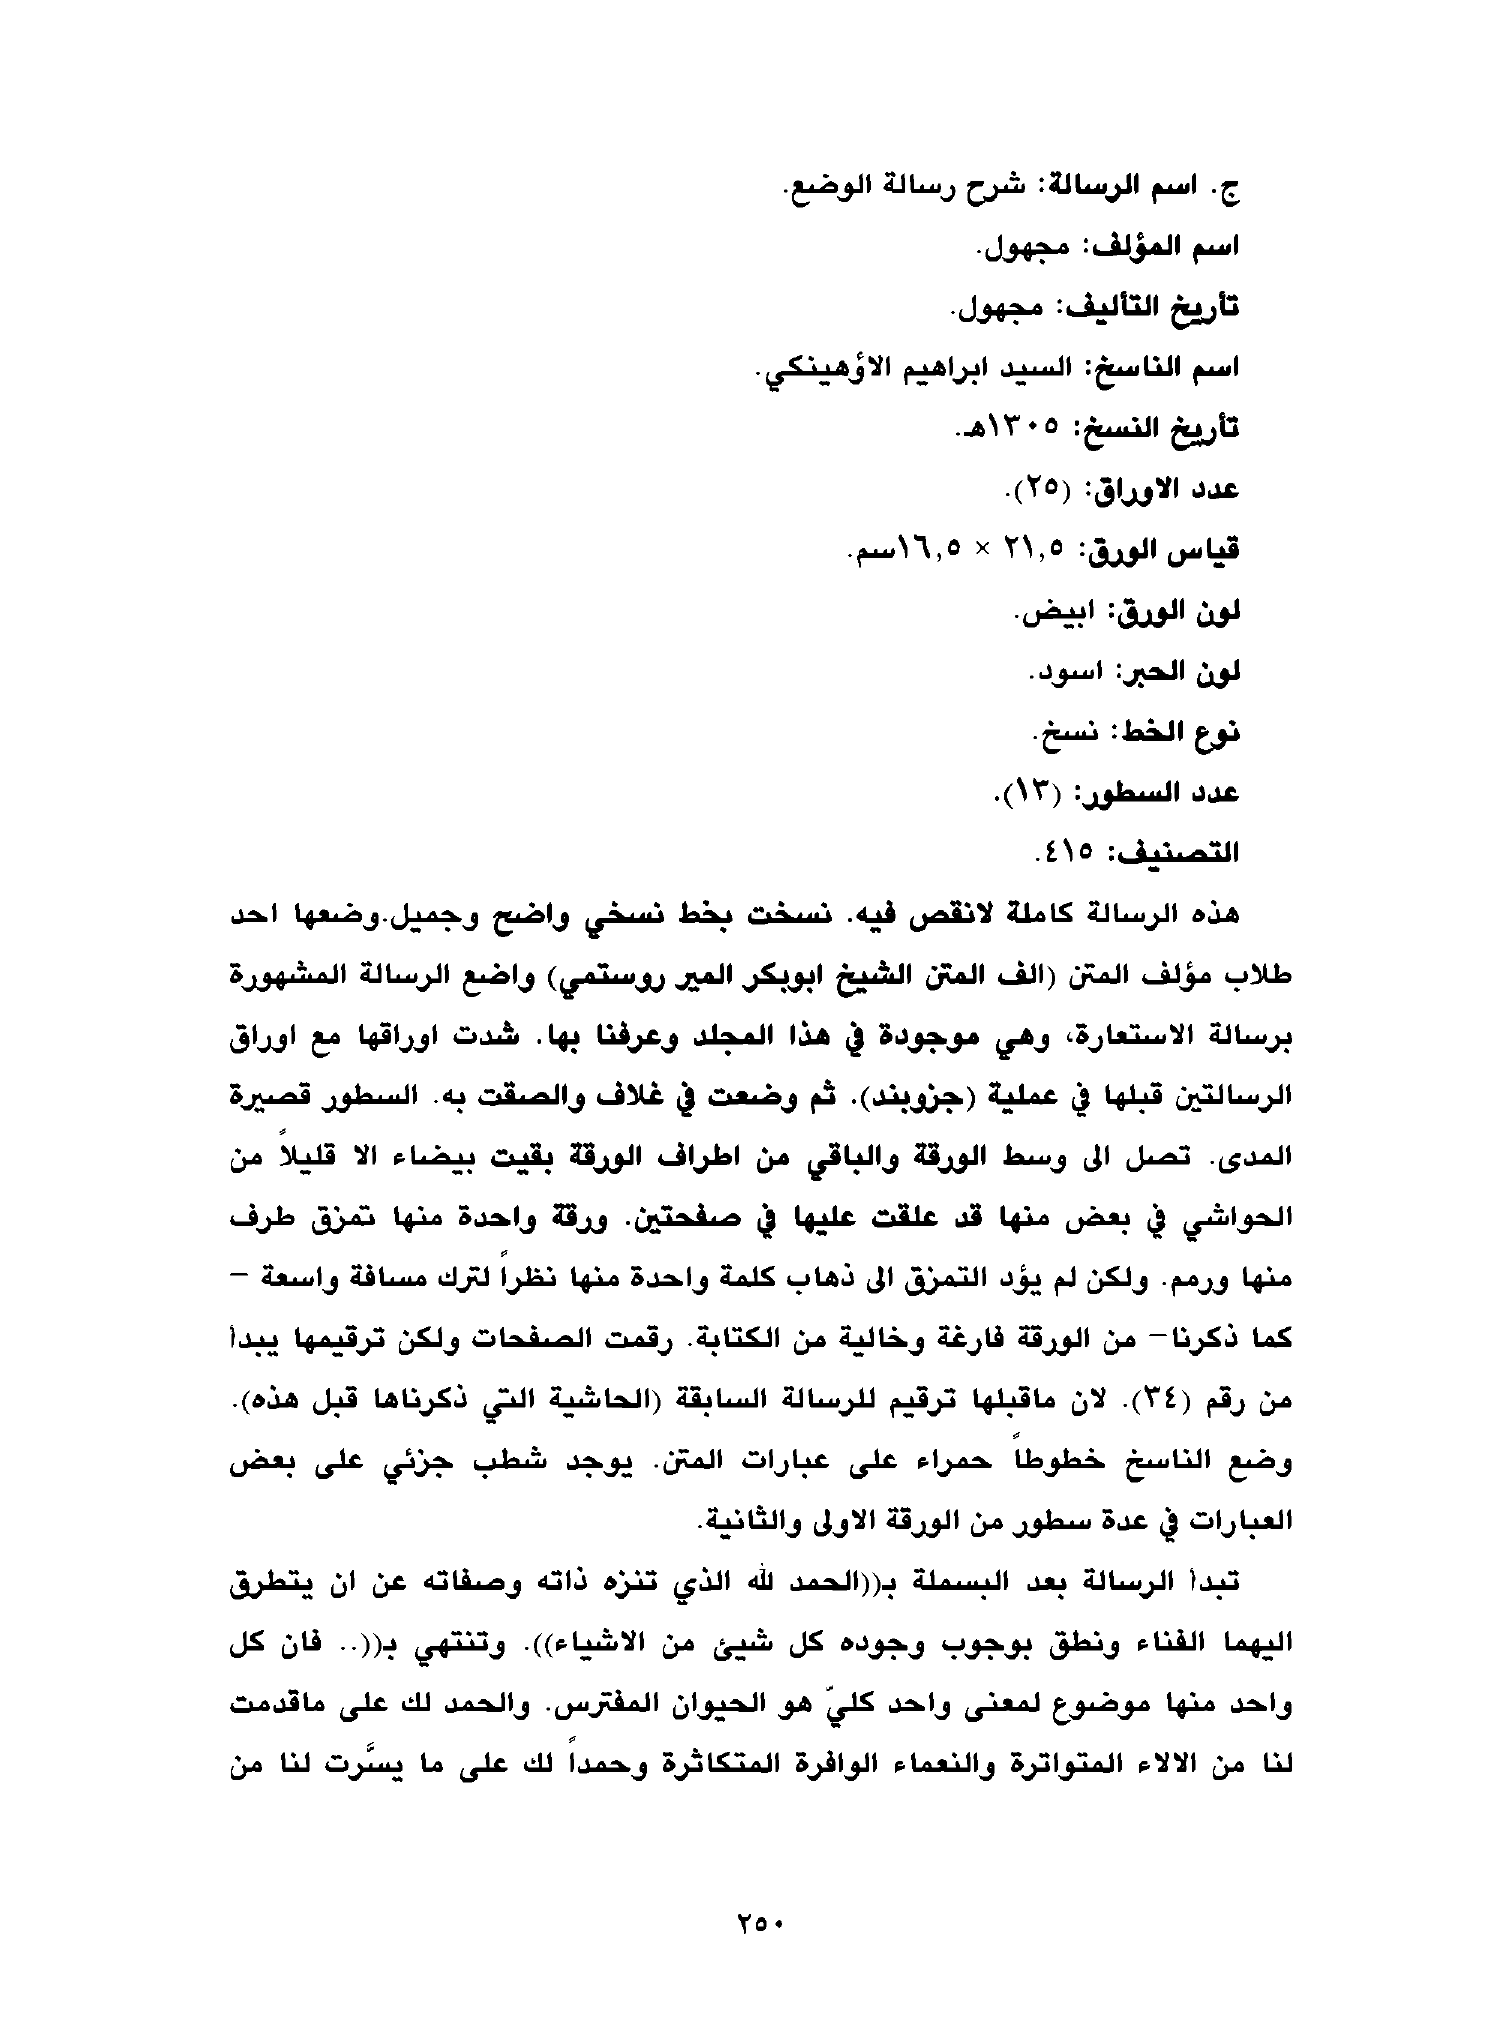 ج. اسم الرسالة: شرح رسالة الوضع.
اسم المؤلف: مجهول.
تأريخ التأليف: مجهول.
اسم الناسخ: السيد ابراهيم الاؤهينكي.
تأريخ النسخ: ١٣٠٥هـ.
عدد الاوراق: (٢٥).
قياس الورق: ٢١,٥ × ١٦,٥سم.
لون الورق: ابيض.
لون الحبر: اسود.
نوع الخط: نسخ.
عدد السطور: (١٣).
التصنيف: ٤١٥.
هذه الرسالة كاملة لانقص فيه. نسخت بخط نسخي واضح وجميل.وضعها احد
طلاب مؤلف المتن (الف المتن الشيخ ابوبكر المير روستمي) واضع الرسالة المشهورة
برسالة الاستعارة، وهي موجودة في هذا المجلد وعرفنا بها. شدت اوراقها مع اوراق
الرسالتين قبلها في عملية (جزوبند). ثم وضعت في غلاف والصقت به. السطور قصيرة
المدى. تصل الى وسط الورقة والباقي من اطراف الورقة بقيت بيضاء الا قليلاً من
الحواشي في بعض منها قد علقت عليها في صفحتين. ورقة واحدة منها تمزق طرف
منها ورمم. ولكن لم يؤد التمزق الى ذهاب كلمة واحدة منها نظراً لترك مسافة واسعة –
كما ذكرنا– من الورقة فارغة وخالية من الكتابة. رقمت الصفحات ولكن ترقيمها يبدأ
من رقم (٣٤). لان ماقبلها ترقيم للرسالة السابقة (الحاشية التي ذكرناها قبل هذه).
وضع الناسخ خطوطاً حمراء على عبارات المتن. يوجد شطب جزئي على بعض
العبارات في عدة سطور من الورقة الاولى والثانية.
تبدأ الرسالة بعد البسملة بـ((الحمد لله الذي تنزه ذاته وصفاته عن ان يتطرق
اليهما الفناء ونطق بوجوب وجوده كل شيئ من الاشياء)). وتنتهي بـ((.. فان كل
واحد منها موضوع لمعنى واحد كليّ هو الحيوان المفترس. والحمد لك على ماقدمت
لنا من الالاء المتواترة والنعماء الوافرة المتكاثرة وحمداً لك على ما يسَّرت لنا من
٢٥٠